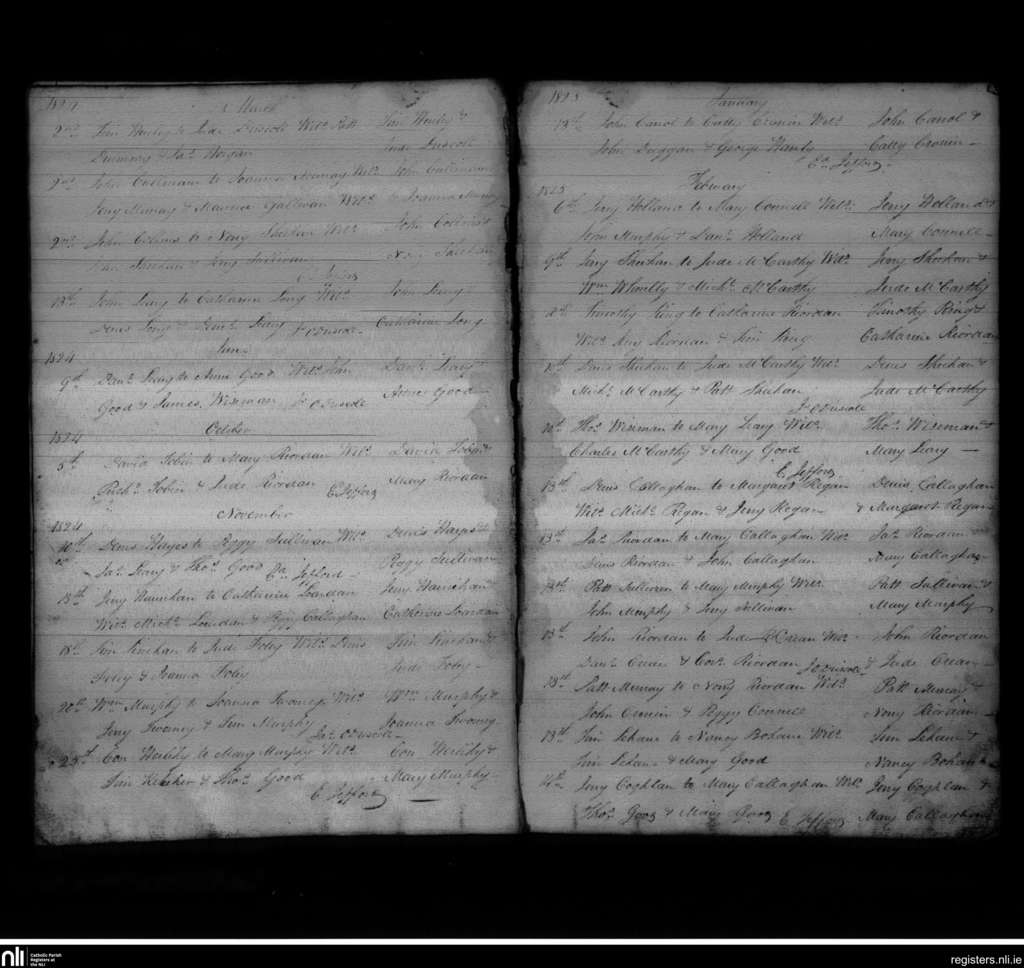 1824
March
2nd Tim Henley to Jude Driscoll Wits. Patt Tim Henley &
& Jas. Horgan Jude Driscoll
2nd John to Joanna Murray Wits. John
Jeny Murray & Maurice Gallivan Wits. & Joanna
2nd John Collins to Nony Sheehan Wits. John Collins &
Sheehan & Jeny Sullivan Nony Sheehan
13th John Leary to Catharine Long Wits. John Leary &
Denis Long & Leary J. O Driscole Catharine Long
June
1824
9th Danl. Leary to Anne Good Wits. John Danl. Leary
Good & James Wiseman J. O Driscole Anne Good
October
1824
5th David Tobin to Mary Riordan Wits. David Tobin &
Richd. Tobin & Jude Riordan E Jefford Mary Riordan
November
1824
10th Denis Hayes to Peggy Sullivan Wits. Denis Hayes &
Jas. Leary & Thos. Good Ed. Jefford Peggy Sullivan
18th Jeny Hanrihan to Catharine Loardan Jeny Hanrihan &
Wits. Michl. Lourdan & Peggy Callaghan Catharine Loardan
18th Tim Linehan to Jude Foley Wits. Denis Tim Linehan &
Foley & Joanna Foley Jude Foley
20th Wm. Murphy to Joanna Twomey Wits. Wm. Murphy &
Jeny Twomey & Tim Murphy Jas. O Driscole Joanna Twomey
25th Con Herlihy to Mary Murphy Wits. Con Herlihy &
Tim Kelleher & Thos. Good Mary Murphy
E Jefford
1825
January
13th John Carol to Catty Cronin Wits. John Carol &
John Duggan & George Hanly Catty Cronin
Ed. Jefford
February
1825
6th Jeny Holland to Mary Connell Wits. Jeny Holland &
Murphy & Danl. Holland Mary Connell
9th Jeny Sheehan to Jude McCarthy Wits. Jeny Sheehan &
Wm. & Michl. McCarthy Jude McCarthy
Timothy Ring to Catharine Riordan Timothy Ring &
Wits. Jeny Riordan & Tim Ring Catharine Riordan
Denis Sheehan to Jude McCarthy Wits. Denis Sheehan &
Michl. McCarthy & Patt Sheehan Jude McCarthy
J. O Driscole
10th Thos. Wiseman to Mary Leary Wits. Thos. Wiseman &
Charles McCarthy & Mary Good Mary Leary
E Jefford
13th Denis Callaghan to Margaret Regan Denis Callaghan
Wits. Michl. Regan & Jeny Regan & Margaret Regan
13th Jas. Riordan to Mary Callaghan Wits. Jas. Riordan
Denis Riordan & John Callaghan Mary Callaghan
13th Patt Sullivan to Mary Murphy Wits. Patt Sullivan &
John Murphy & Jeny Sullivan Mary Murphy
13th John Riordan to Jude Crean Wits. John Riordan
Danl. Crean & Riordan J. O Driscole & Jude Crean
13th Patt Murray to Nony Riordan Wits. Patt Murray &
John Cronin & Peggy Connell Nony Riordan
13th Tim Lehane to Nancy Bohane Wits. Tim Lehane &
Tim Lehane & Mary Good Nancy Bohane
14th Jeny Coghlan to Mary Callaghan Wits. Jeny Coghlan &
Thos. Good & Mary Good E Jefford Mary Callaghan
nli
Catholic Parish
Registers at
the NLI
registers.nli.ie